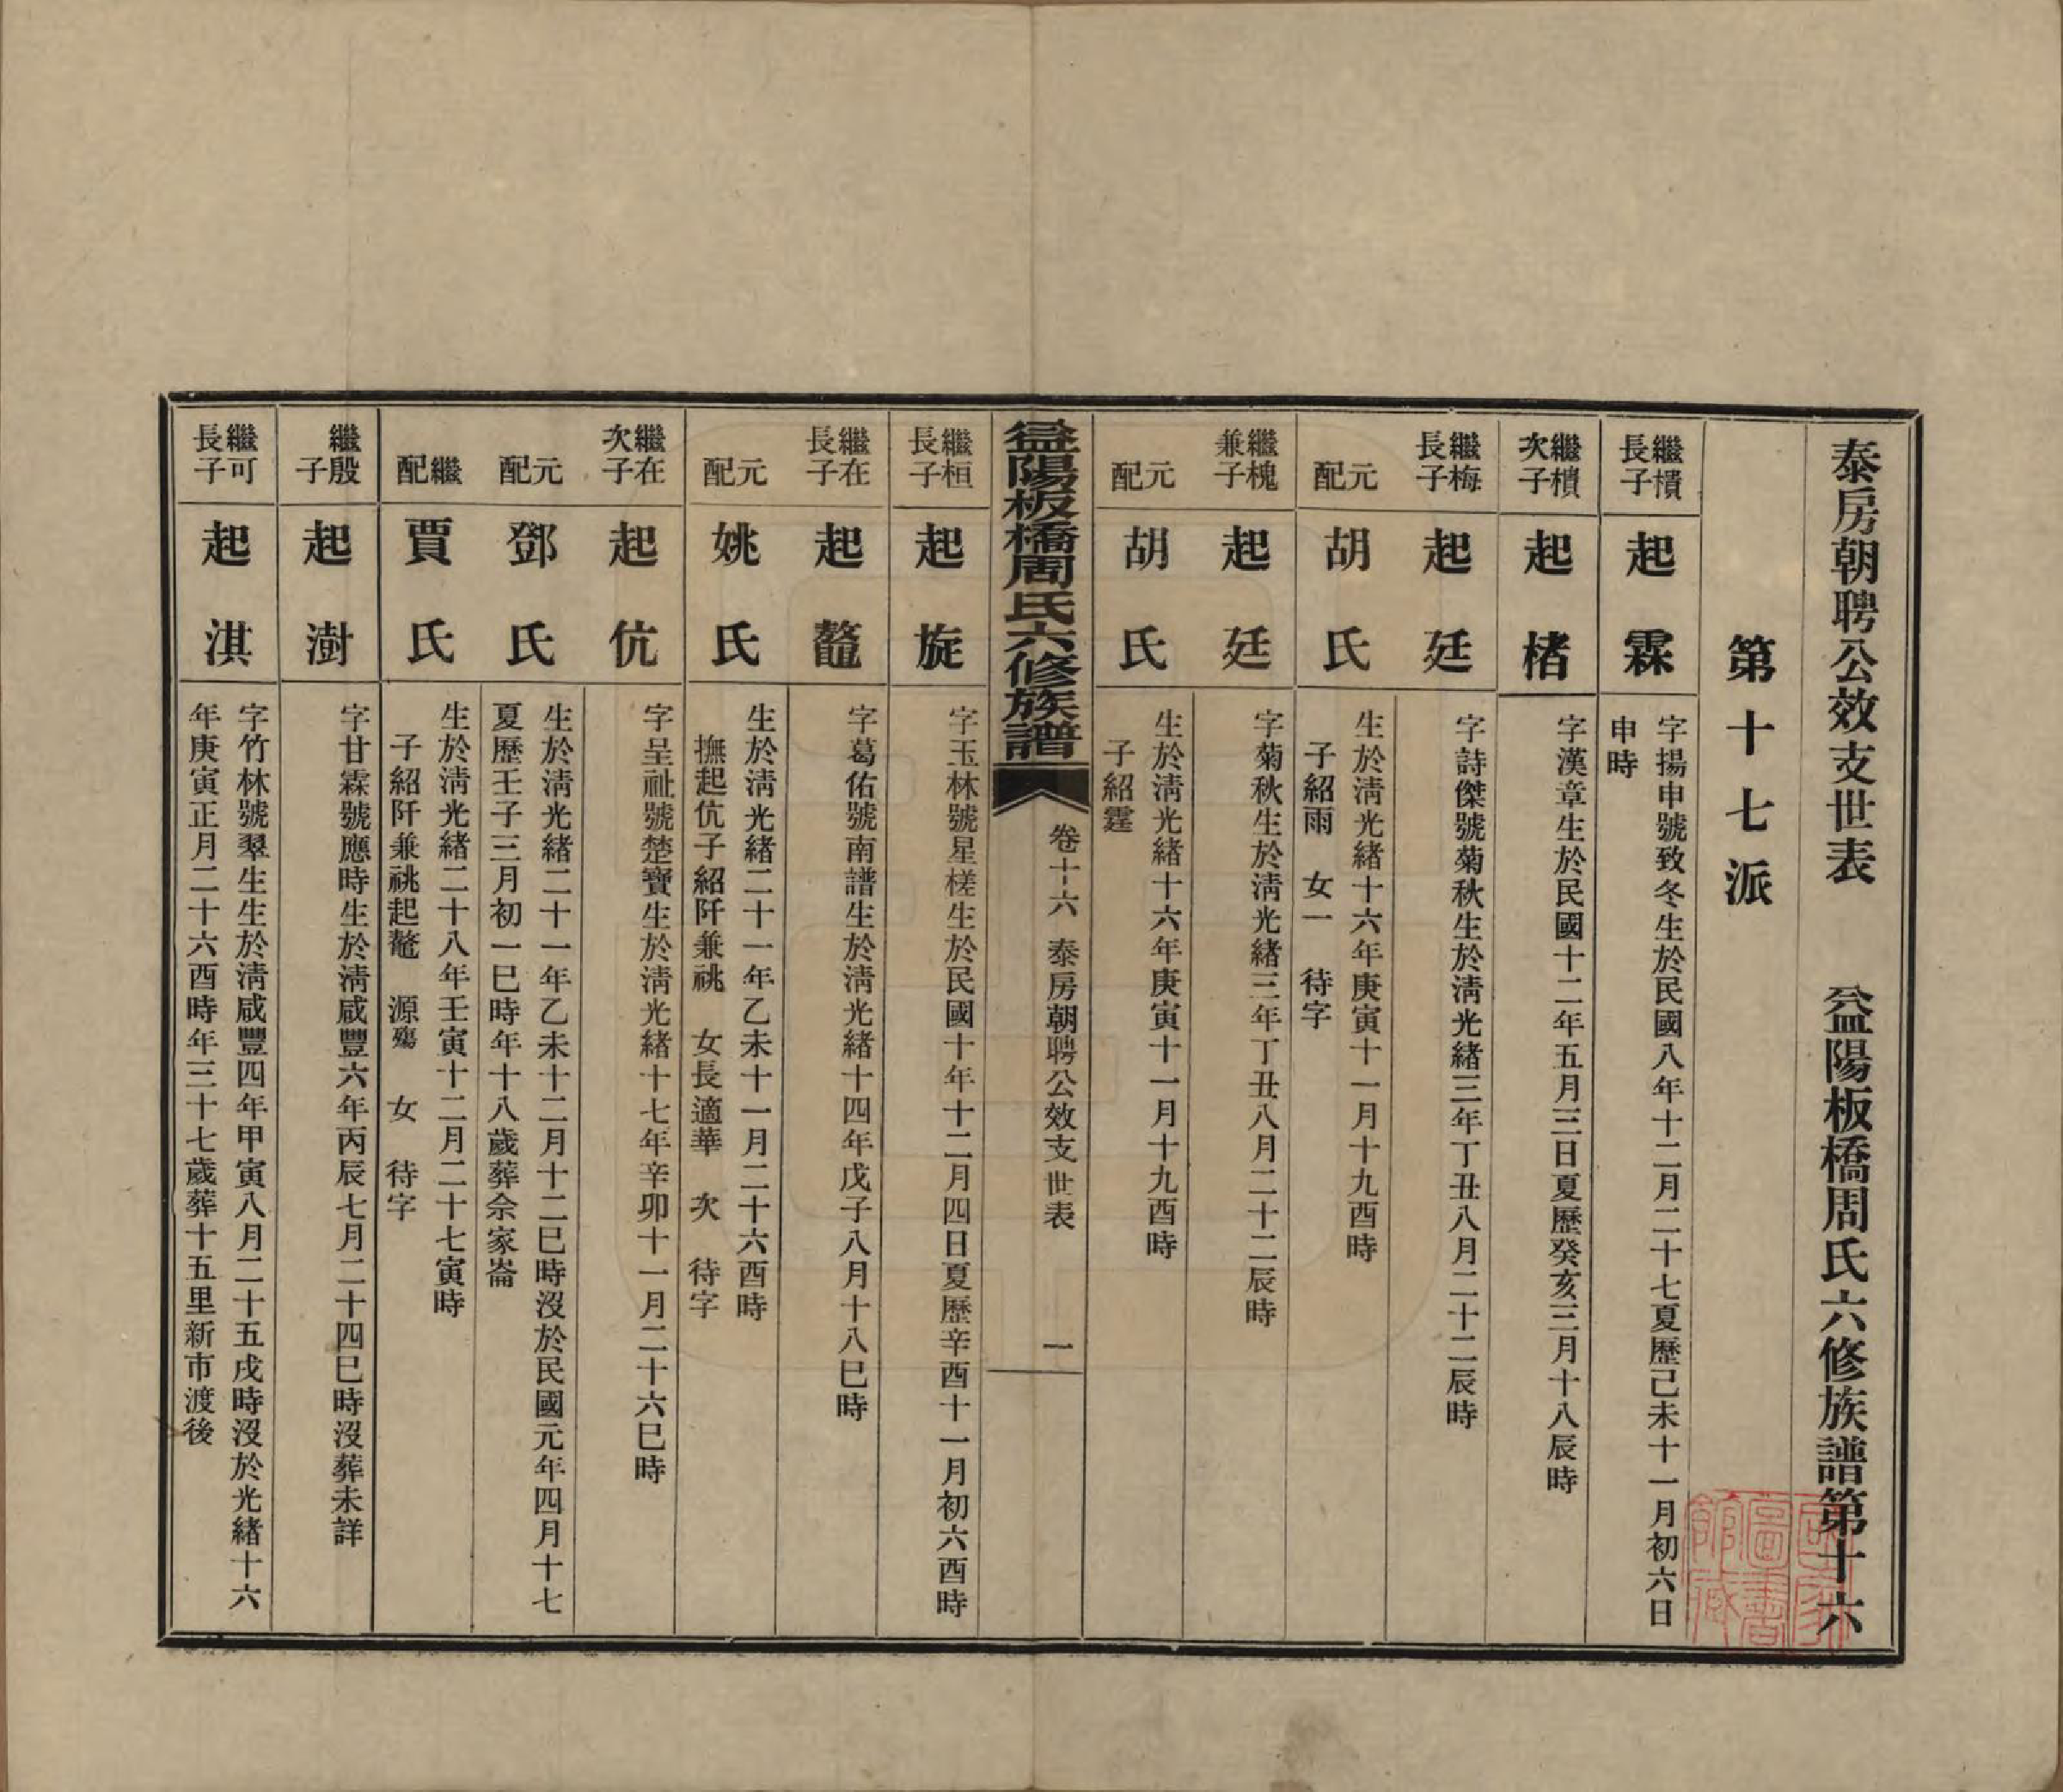 泰房朝聘公效支世表　益陽板橋周氏六修族譜第十六
第十七派
繼樻長子
起霖
字揚申號致冬生於民國八年十二月二十七夏歷己未十一月初六日
申時
繼樻次子
起楮
字漢章生於民國十二年五月三日夏歷癸亥三月十八辰時
繼梅長子
起廷
字詩傑號菊秋生於淸光緒三年丁丑八月二十二辰時
元配
胡氏
生於淸光緒十六年庚寅十一月十九酉時
子紹雨　女一　待字
繼槐兼子
起廷
字菊秋生於淸光緒三年丁丑八月二十二辰時
元配
胡氏
生於淸光緒十六年庚寅十一月十九酉時
子紹霆
益陽板橋周氏六修族譜
卷十六　泰房朝聘公效支世表
一
繼桓長子
起旋
字玉林號星槎生於民國十年十二月四日夏歷辛酉十一月初六酉時
繼在長子
起鼇
字葛佑號南譜生於淸光緒十四年戊子八月十八巳時
元配
姚氏
生於淸光緒二十一年乙未十一月二十六酉時
撫起伉子紹阡兼祧　女長適華　次　待字
繼在次子
起伉
字呈祉號楚寶生於淸光緒十七年辛卯十一月二十六巳時
元配
鄧氏
生於淸光緒二十一年乙未十二月十二巳時沒於民國元年四月十七
夏歷壬子三月初一巳時年十八歲葬佘家崙
繼配
賈氏
生於淸光緒二十八年壬寅十二月二十七寅時
子紹阡兼祧起鼇　源殤　女　待字
繼殷子
起澍
字甘霖號應時生於淸咸豐六年丙辰七月二十四巳時沒葬未詳
繼可長子
起淇
字竹林號翠生生於淸咸豐四年甲寅八月二十五戌時沒於光緒十六
年庚寅正月二十六酉時年三十七歲葬十五里新市渡後
國家圖書館藏